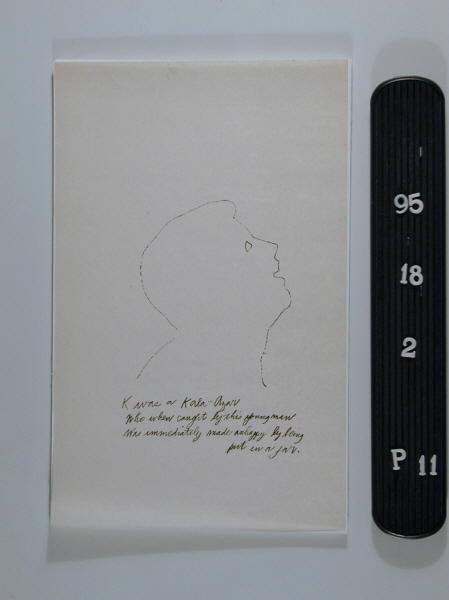 K was a Kala-Azar
Who when caught by this young man
Was immediately made unhappy by being
put in a jar.
95
18
2
P 11